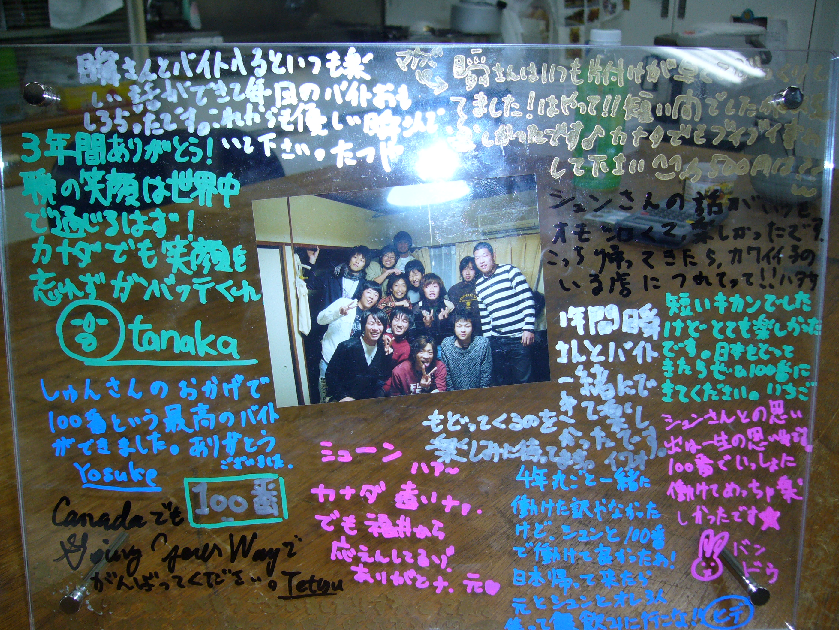 瞬さんとバイト入るといつも楽
しい話ができて毎日のバイトおも
しろかったです。これからも優しい瞬さんで
いて下さい。たつや
瞬さんはいつも片付けが
てました!はやって!!短い間でしたが
楽しかったです♪カナダでも
して下さい
3年間ありがとう!
瞬の笑顔は世界中
で通じるはず!
カナダでも笑顔を
忘れずガンバッテくれ
tanaka
シュンさんの話がいつも
オモシロくて、楽しかったです。
こっち帰ってきたら、カワイイ子の
いる店につれてって!!
1年間瞬
さんとバイト
一緒にで
きて楽し
かったです。
もどってくるのを
楽しみに待ってます。
短いキカンでした
けどとても楽しかった
です。日本もどって
きたらぜひ100番に
きてください。いちご
しゅんさんのおかげで
100番という最高のバイト
ができました。ありがとう
ございました。
Yosuke
100番
Canadaでも
Going Your Wayで
がんばってください。Tetsu
ミューン
カナダ遠いナァ。
でも福井から
応えんしてるゾ!
ありがとナ、元
4年丸ごと一緒に
働けた訳じゃなかった
けど、シュンと100番
で働けて良かったわ!
日本帰って来たら
元とシュンとオレ3人
ヒデ
シュンさんとの思い
出は一生の思い出です
100番でいっしょに
働けてめっちゃ楽
しかったです★